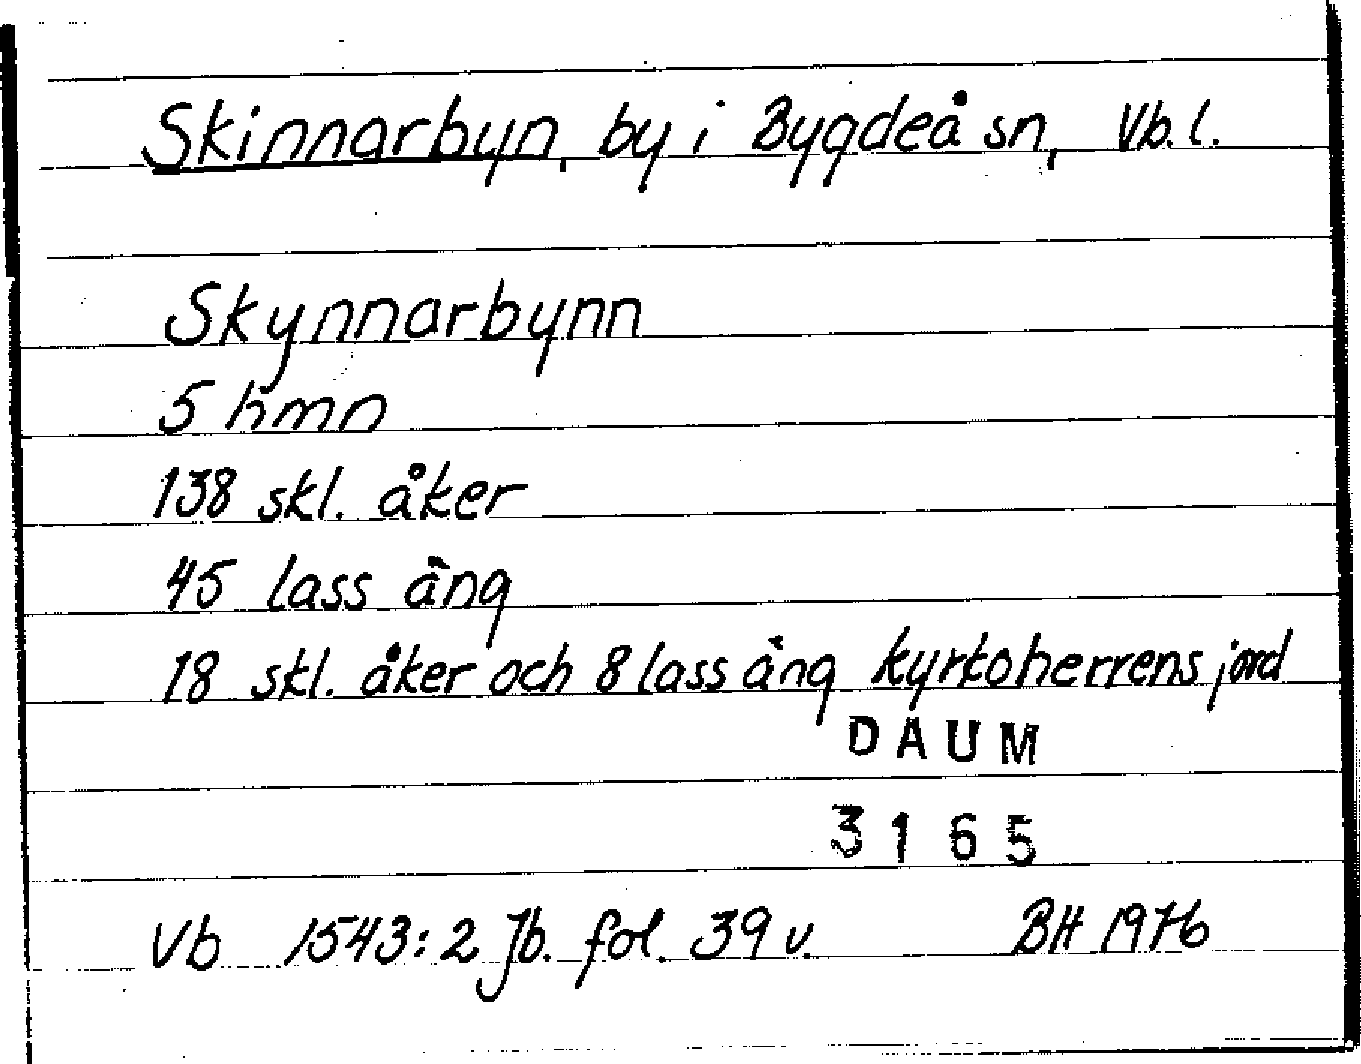 Skinnarbyn, by i Bygdeå sn, Vb. l.
Skynnarbynn
5 hmn
138 skl. åker
45 lass äng
18 skl. åker och 8 lass äng kyrkoherrens jord
DAUM
3165
Vb 1543:2 Jb. fol. 39 v. BH 1976